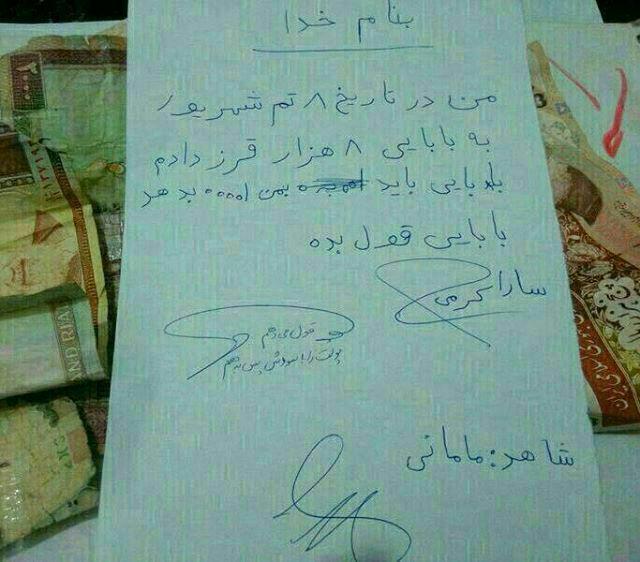 بنام خدا
من در تاریخ ۸ تم شهریور
به بابایی ۸ هزار قرز دادم
بابایی باید بمن ۱۰۰۰۰ بدهد
بابایی قول بده
سارا کرمی
قول می دهم
پولت را با سودش پس بدهم
شاهد: مامانی
۲۰۰۰
AND RIA